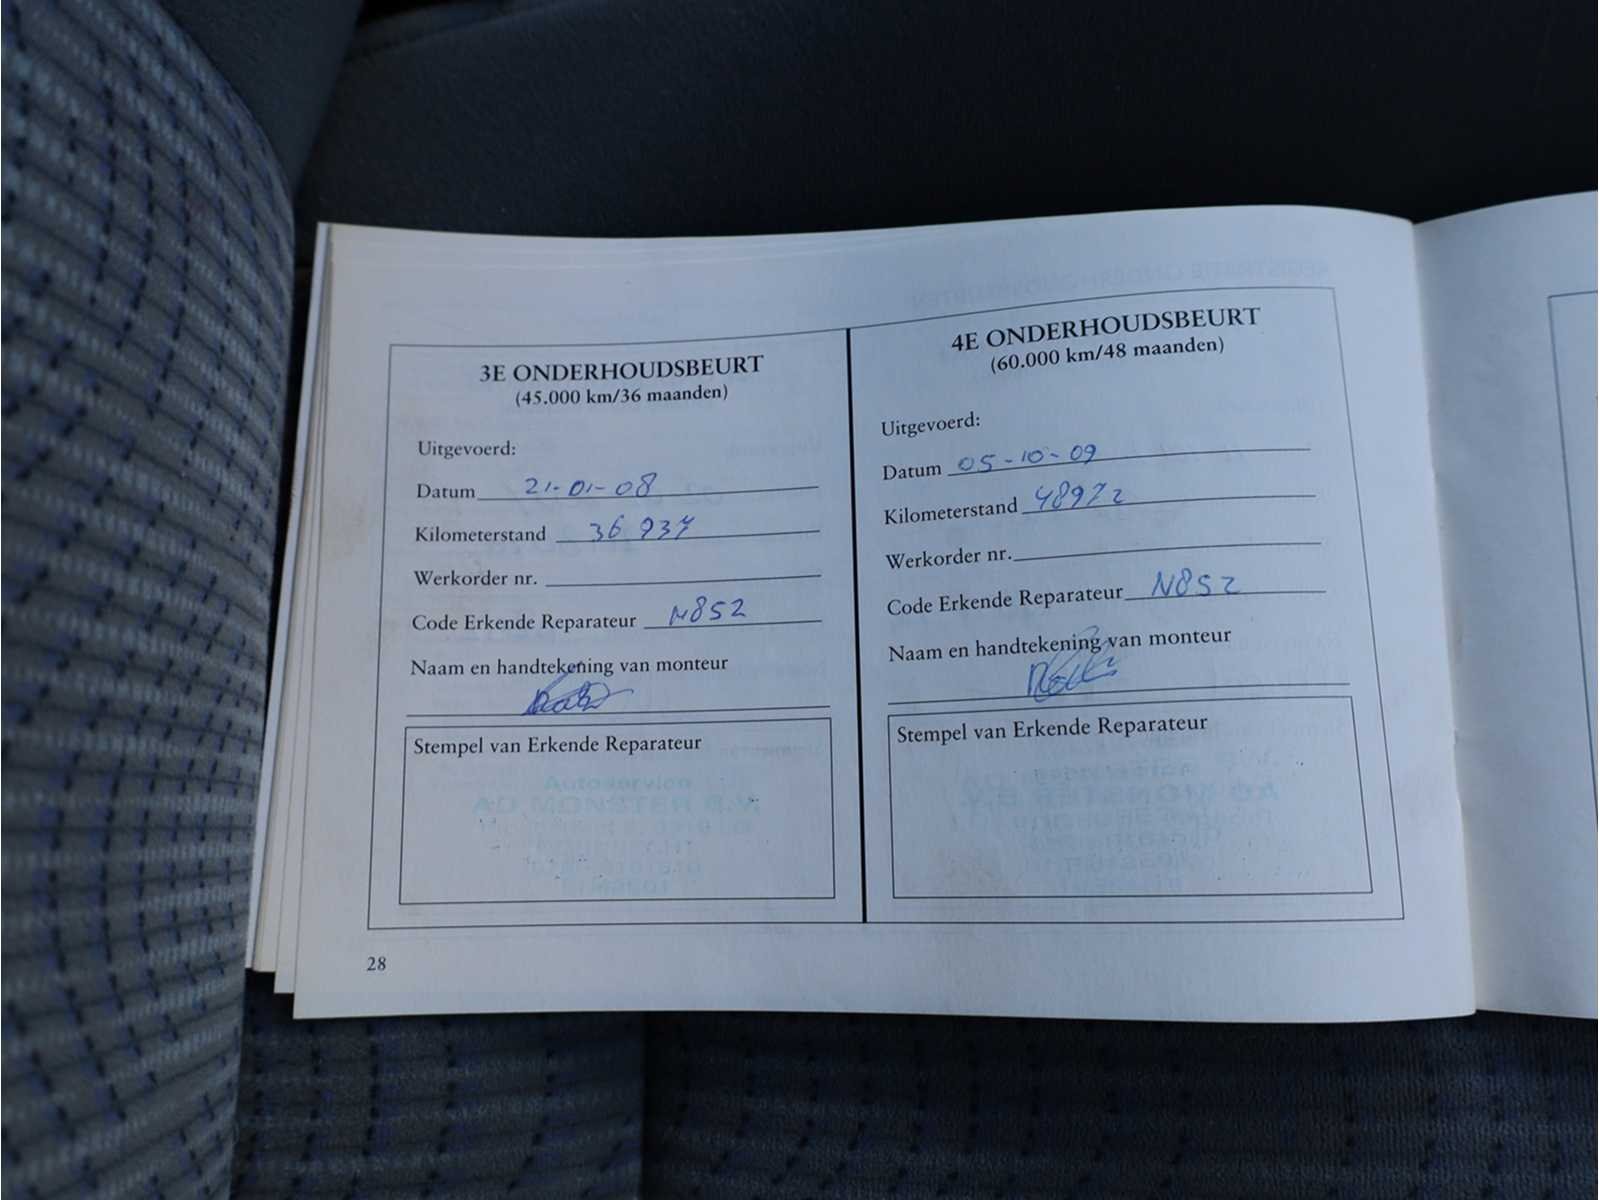 3E ONDERHOUDSBEURT
(45.000 km/36 maanden)
Uitgevoerd:
Datum 21-01-08
Kilometerstand 36 937
Werkorder nr.
Code Erkende Reparateur N852
Naam en handtekening van monteur
Stempel van Erkende Reparateur
Autoservice
AD MONSTER B.V.
4E ONDERHOUDSBEURT
(60.000 km/48 maanden)
Uitgevoerd:
Datum 05-10-09
Kilometerstand 48972
Werkorder nr.
Code Erkende Reparateur N852
Naam en handtekening van monteur
Stempel van Erkende Reparateur
28